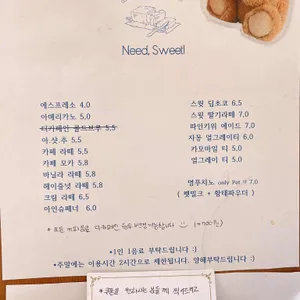 Need, Sweet!
에스프레소 4.0
아메리카노 5.0
디카페인 콜드브루 5.5
아샷추 5.5
카페 라떼 5.5
카페 모카 5.8
바닐라 라떼 5.8
헤이즐넛 라떼 5.8
크림 라떼 6.5
아인슈페너 6.0
스윗 딥초코 6.5
스윗 딸기라떼 7.0
파인키위 에이드 7.0
자몽 얼그레이티 6.0
카모마일 티 5.0
얼그레이 티 5.0
멍푸치노 only Pet !! 7.0
( 펫밀크 + 황태파우더 )
* 모든 커피음료 디카페인 변경가능합니다 (+700원)
*1인 1음료 부탁드립니다 :)
*주말에는 이용시간 2시간으로 제한됩니다. 양해부탁드립니다 :)